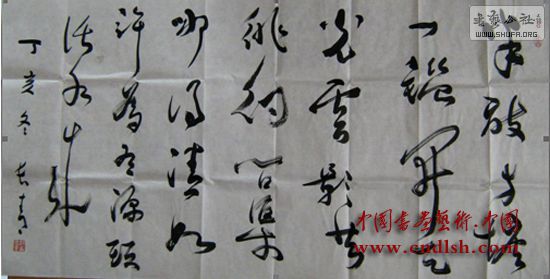 半畝方塘
一鑑開天
光雲影共
徘徊問渠
哪得清如
許為有源頭
活水來
丁亥冬
书艺公社
WWW.SHUFA.ORG
中国书画艺术.中国
www.cndlsh.com